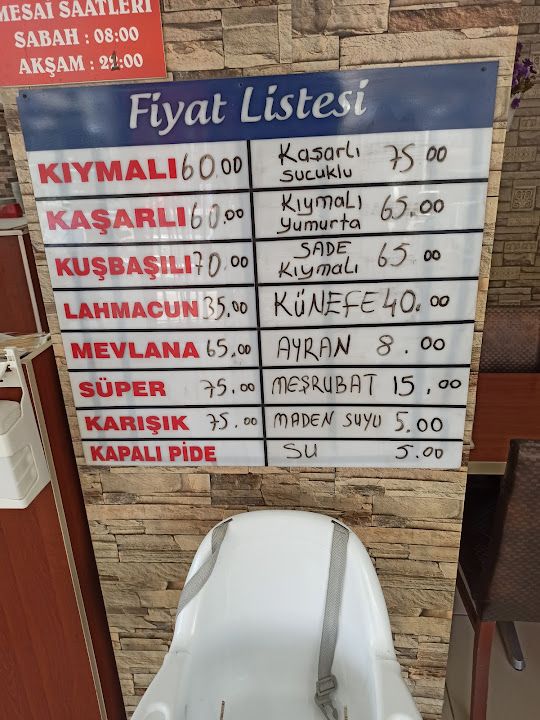 MESAİ SAATLERİ
SABAH : 08:00
AKŞAM : 21:00
Fiyat Listesi
KIYMALI 60.00
KAŞARLI 60.00
KUŞBAŞILI 70.00
LAHMACUN 35.00
MEVLANA 65.00
SÜPER 75.00
KARIŞIK 75.00
KAPALI PİDE
Kaşarlı
sucuklu 75 00
Kıymalı
yumurta 65.00
SADE
Kıymalı 65.00
KÜNEFE 40.00
AYRAN 8.00
MEŞRUBAT 15.00
MADEN SUYU 5.00
SU 5.00